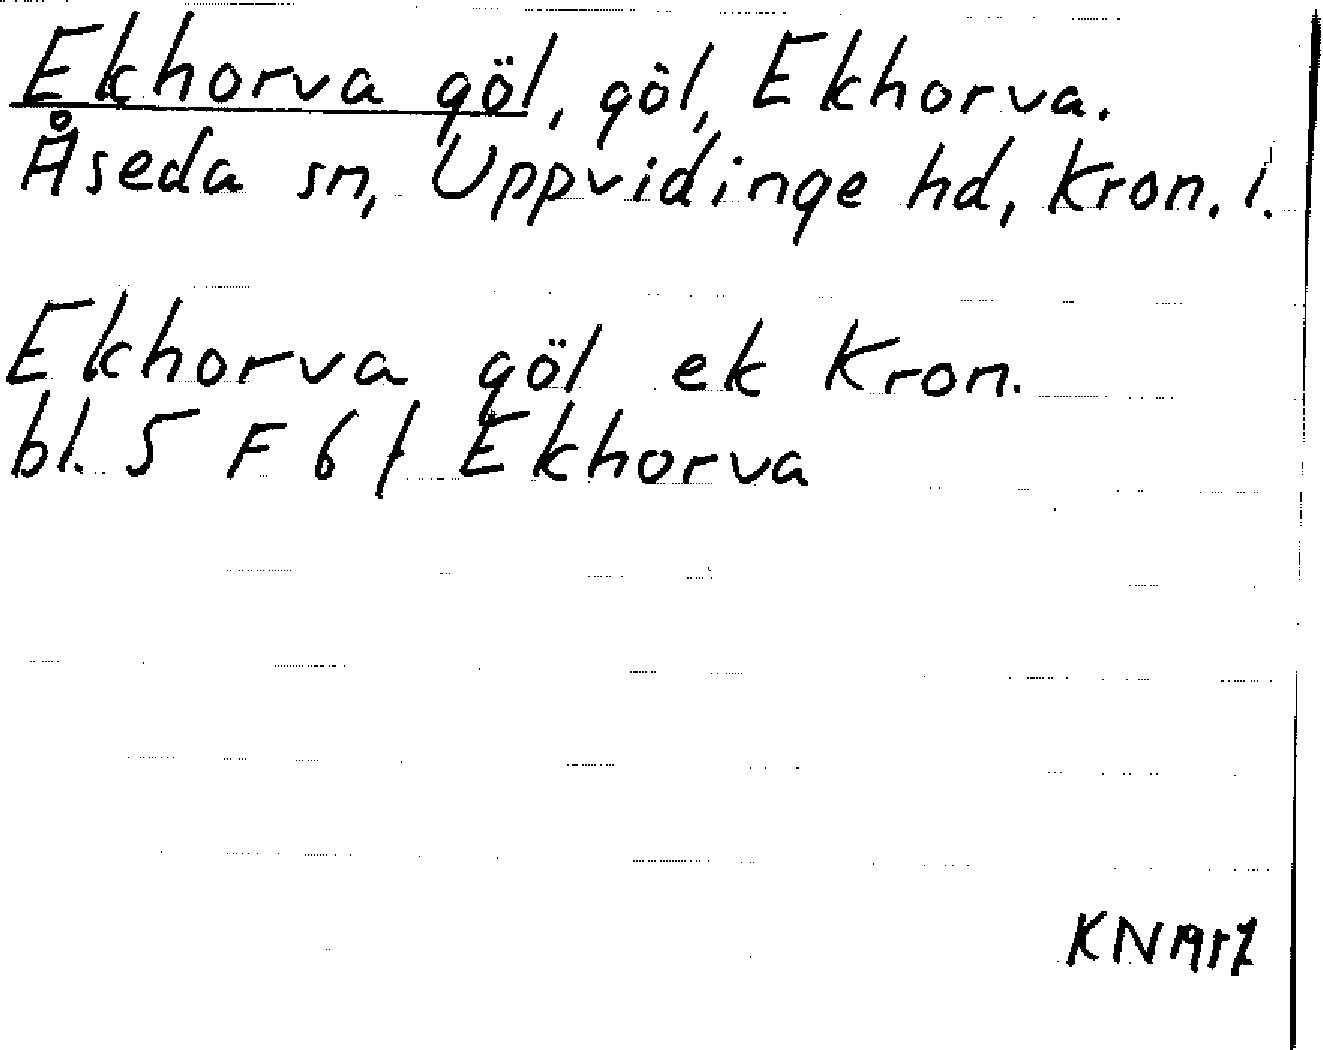 Ekhorva göl, göl, Ekhorva.
Åseda sn, Uppvidinge hd, Kron. l.
Ekhorva göl ek Kron.
bl. 5 F 6 f Ekhorva